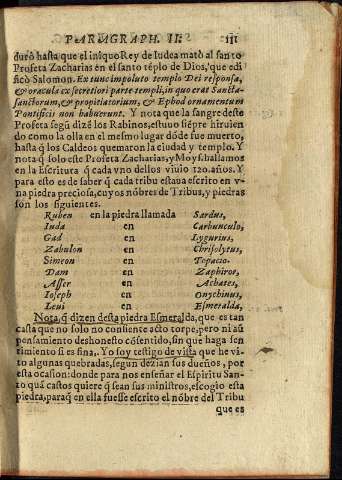 PARAGRAPH. II. 111
durò hasta que el iniquo Rey de Iudea matò al santo
Profeta Zacharias en el santo tẽplo de Dios, que edi
ficò Salomon. Ex tunc impoluto templo Dei responsa,
& oracula ex secretiori parte templi, in quo erat Sancta-
sanctorum, & propitiatorium, & Ephod ornamentum
Pontificis non habuerunt. Y nota que la sangre deste
Profeta segũ dizẽ los Rabinos, estuuo siẽpre hiruien
do como la olla en el mesmo lugar dõde fue muerto,
hasta q̃ los Caldeos quemaron la ciudad y templo. Y
nota q̃ solo este Profeta Zacharias, y Moysẽ hallamos
en la Escritura q̃ cada vno dellos viuio 120. años. Y
para esto es de saber q̃ cada tribu estaua escrito en v-
na piedra preciosa, cuyos nõbres de Tribus, y piedras
son los siguientes.
Ruben en la piedra llamada Sardus,
Iuda en Carbunculo,
Gad en Lygurius,
Zabulon en Chrisolytus,
Simeon en Topacio.
Dam en Zaphiros,
Asser en Achates,
Ioseph en Onychinus,
Leui en Esmeralda,
Nota, q̃ dizen desta piedra Esmeralda, que es tan
casta que no solo no consiente acto torpe, pero ni aũ
pensamiento deshonesto cõsentido, sin que haga sen
timiento si es fina,. Yo soy testigo de vista que he vi-
to algunas quebradas, segun dezian sus dueños, por
esta ocasion: donde para nos enseñar el Espiritu San-
to quã castos quiere q̃ sean sus ministros, escogio esta
piedra, paraq̃ en ella fuesse escrito el nõbre del Tribu
que es